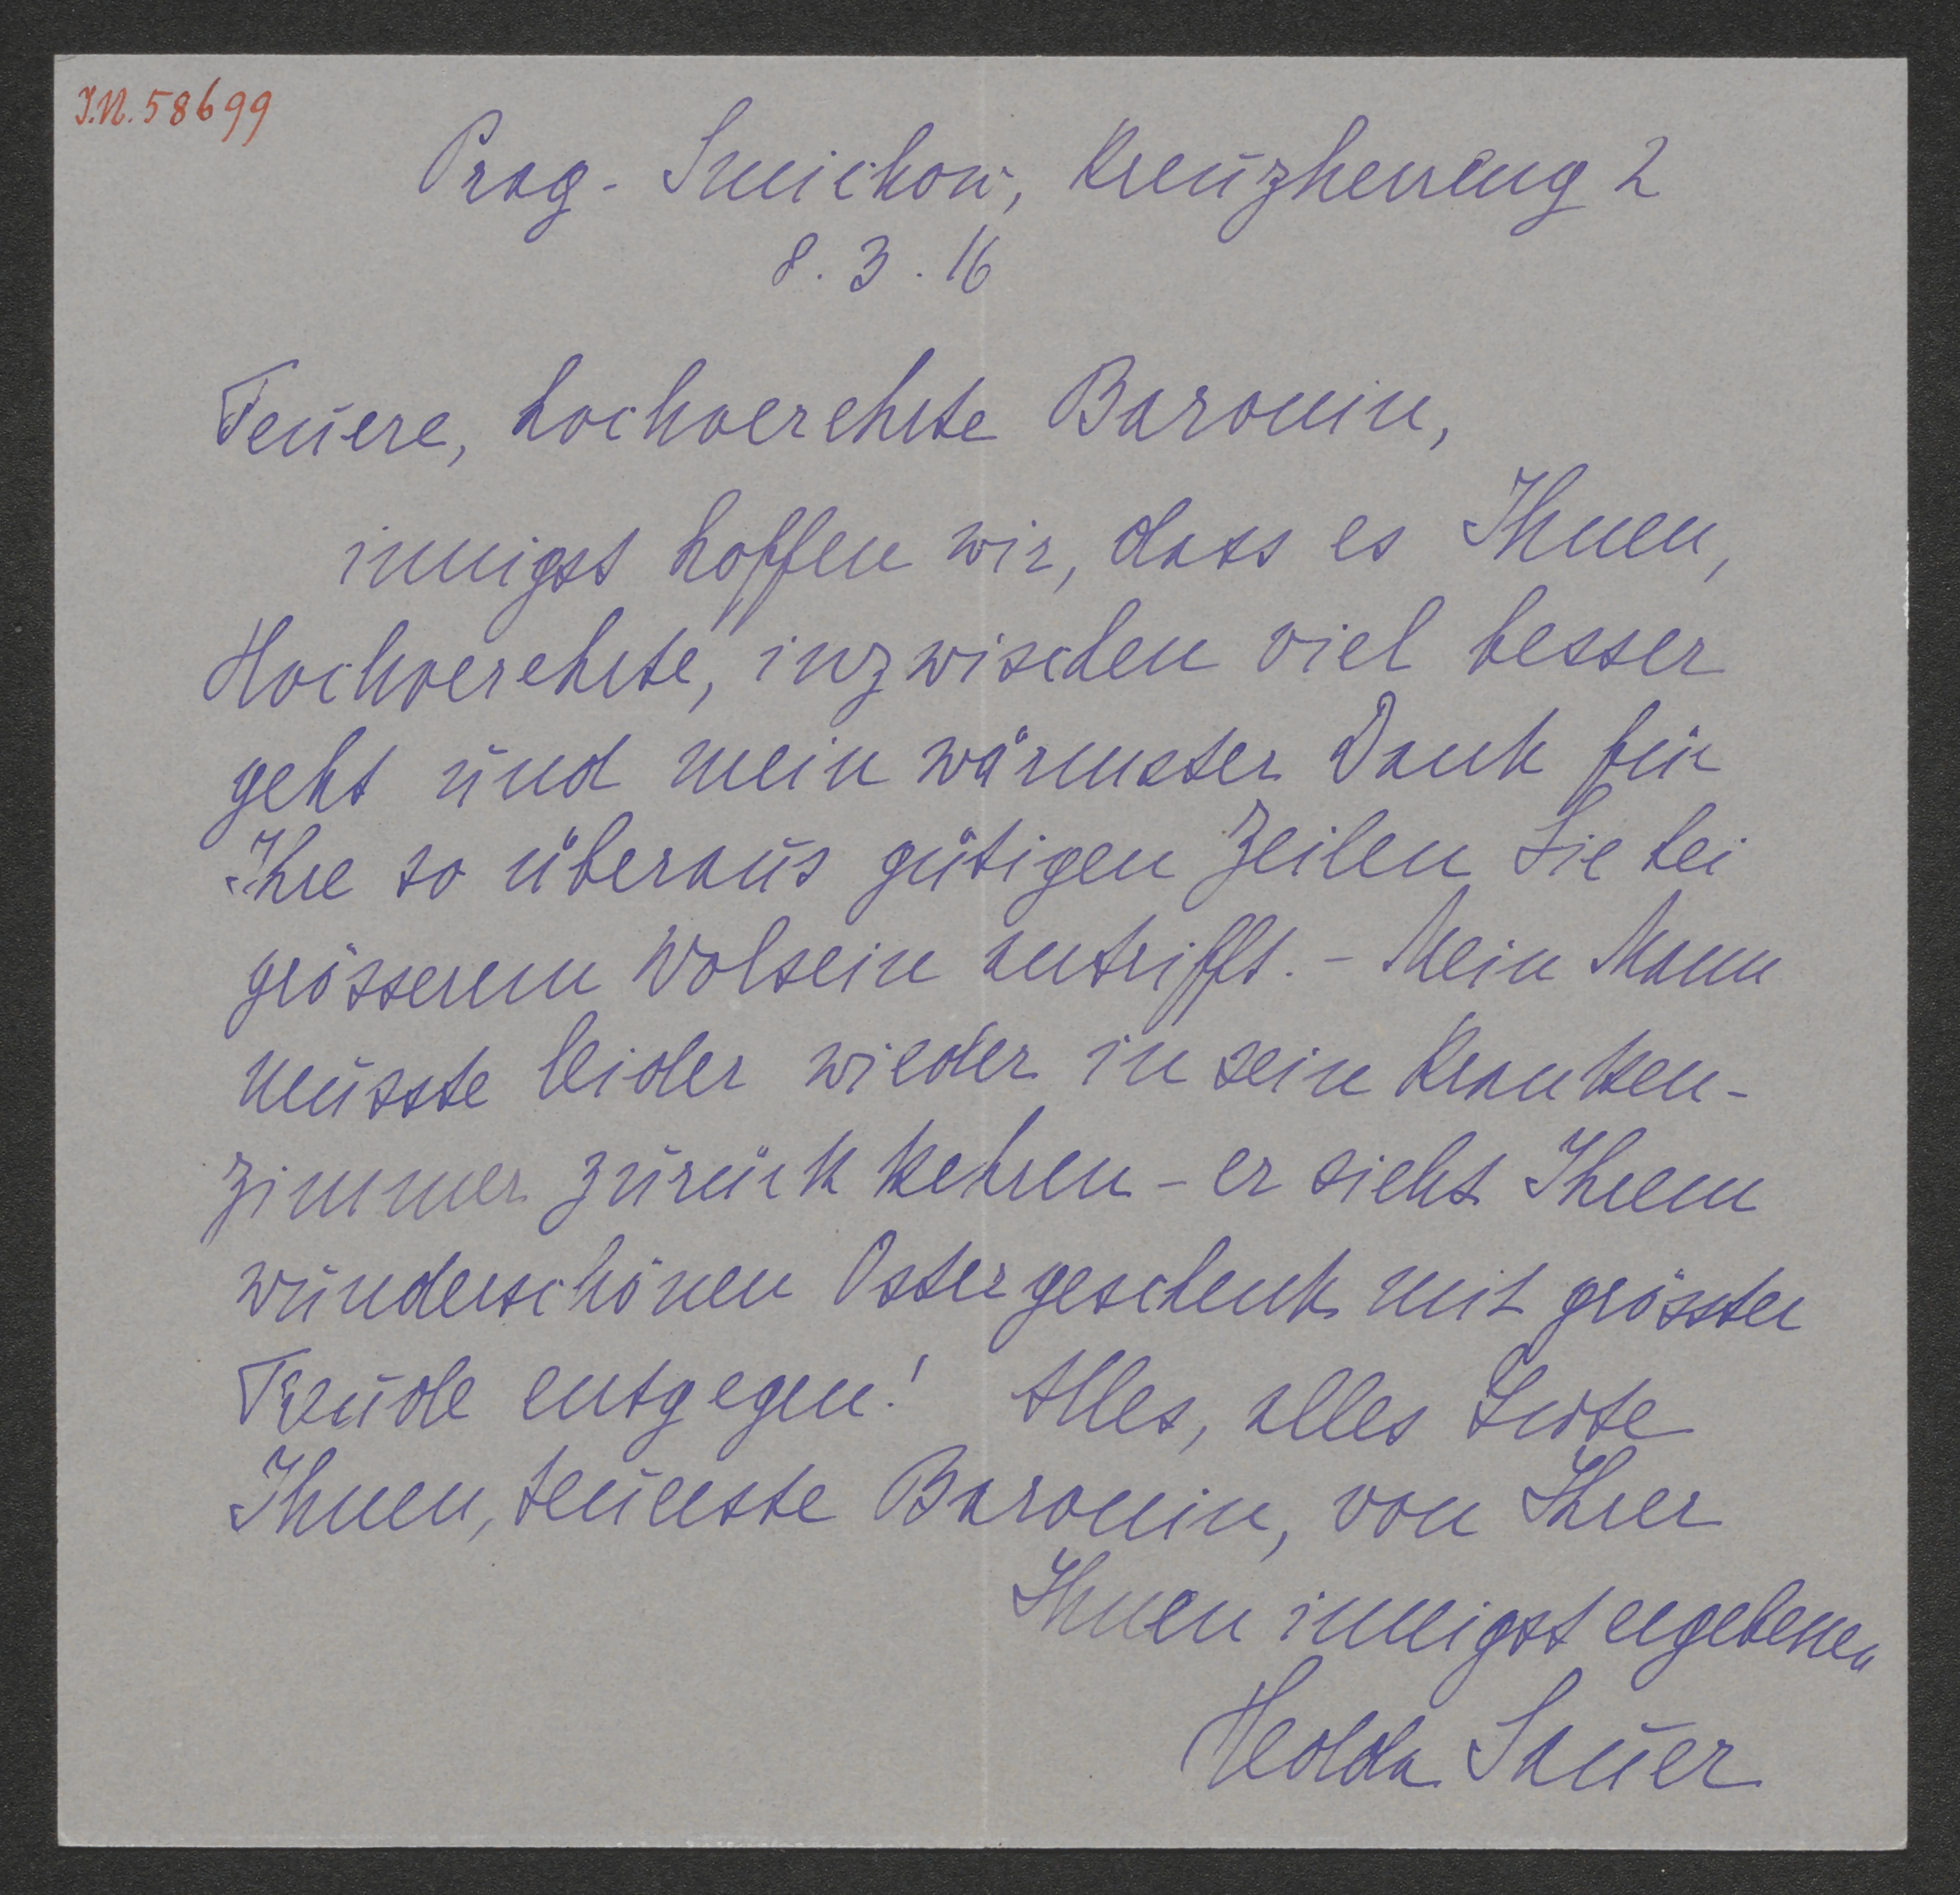 I.N. 58699
Prag-Smichow, Kreuzherreng 2
8. 3. 16
Teuere, hochverehrte Baronin,
innigst hoffen wir, dass es Ihnen,
Hochverehrte, inzwischen viel besser
geht und mein wärmster Dank für
Ihre so überaus gütigen Zeilen Sie bei
grösserem Wolsein antrifft. – Mein Mann
musste leider wieder in sein Kranken-
zimmer zurückkehren – er sieht Ihrem
wunderschönen Ostergeschenk mit grösster
Freude entgegen! Alles, alles Gute
Ihnen, teuerste Baronin, von Ihrer
Ihnen innigst ergebenen
Hedda Sauer